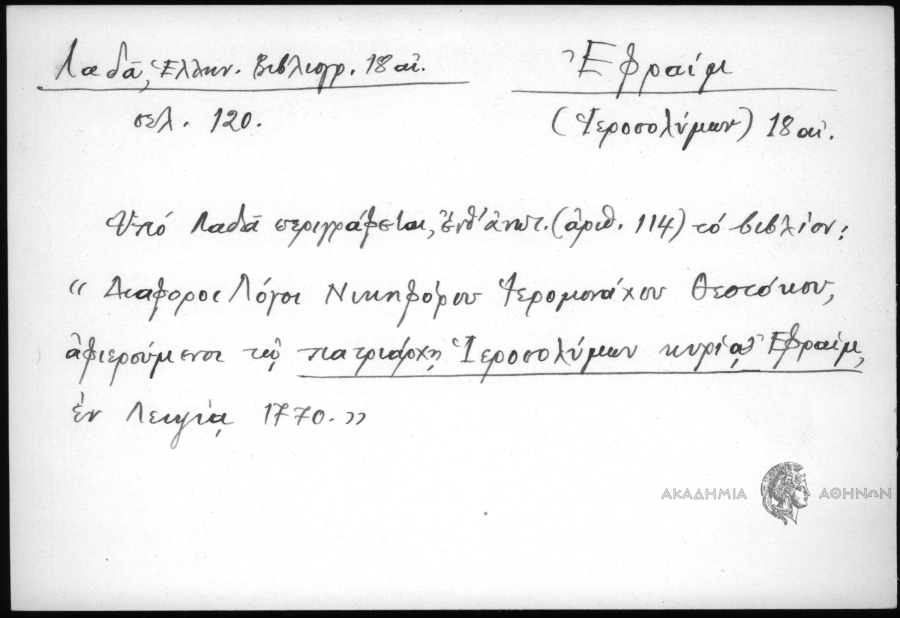 Λαδᾶ, Ἑλλην. Βιβλιογρ. 18 αἰ.
σελ. 120.
Ἐφραίμ
(Ἱεροσολύμων) 18 αἰ.
Ὑπό Λαδᾶ περιγράφεται, ἐνθ' ἀνωτ. (ἀριθ. 114) τό βιβλίον:
« Διάφοροι Λόγοι Νικηφόρου Ἱερομονάχου Θεοτόκου,
ἀφιερούμενοι τῷ πατριάρχῃ Ἱεροσολύμων κυρίῳ Ἐφραίμ,
ἐν Λειψίᾳ 1770. »
ΑΚΑΔΗΜΙΑ ΑΘΗΝΩΝ